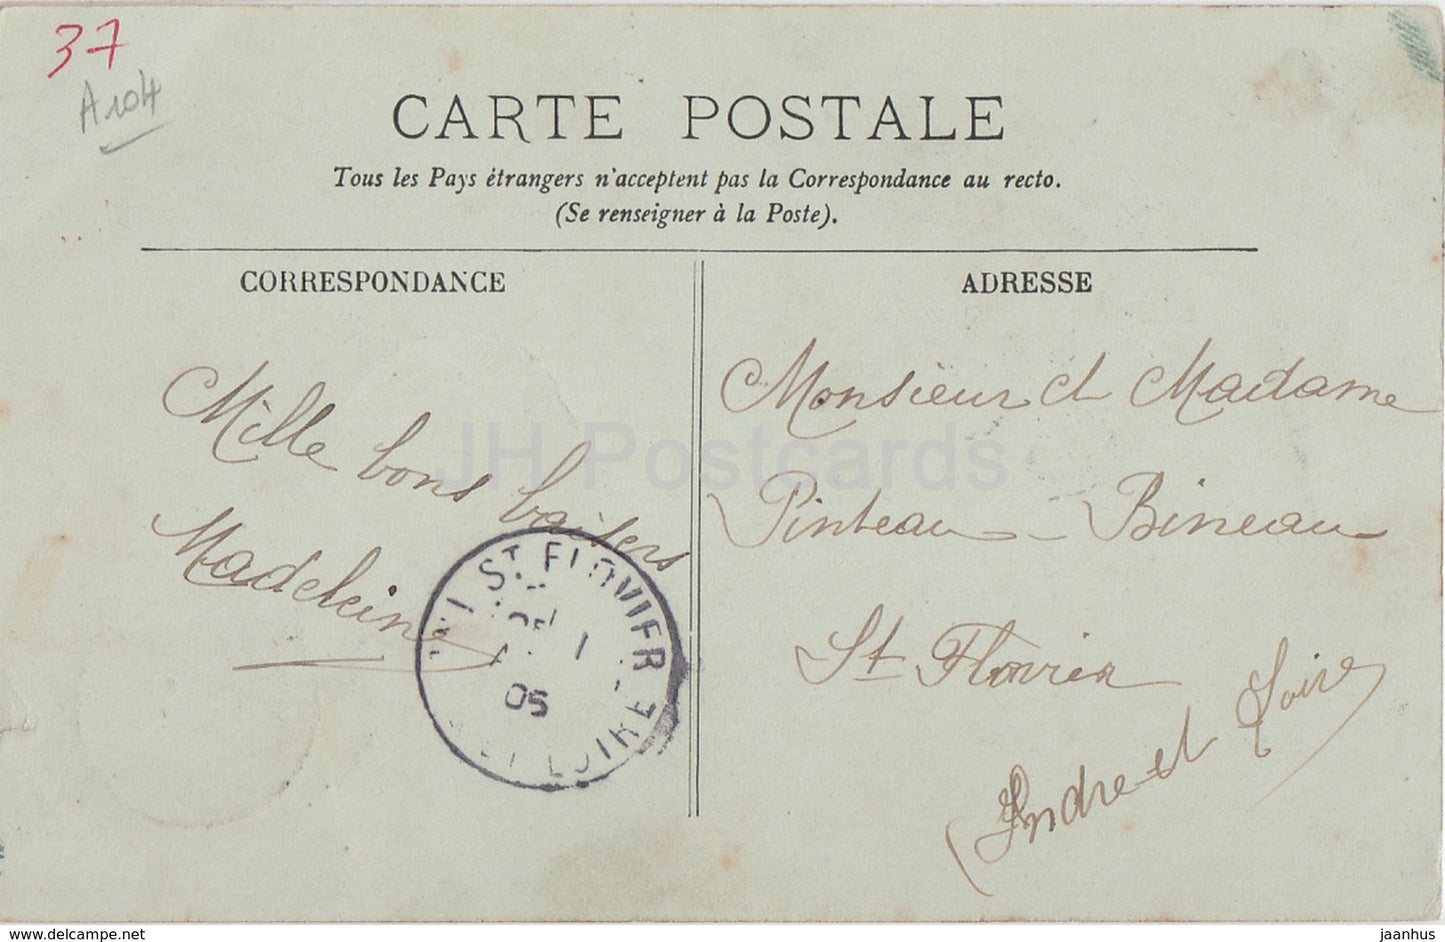 37
A104
CARTE POSTALE
Tous les Pays étrangers n'acceptent pas la Correspondance au recto.
(Se renseigner à la Poste).
CORRESPONDANCE
Mille bons baisers
Madeleine
ADRESSE
Monsieur et Madame
Pinteau - Bineau
St Flovier
(Indre et Loire)
ST FLOVIER
05
ET LOIRE
JH Postcards
www.delcampe.net
jaanhus